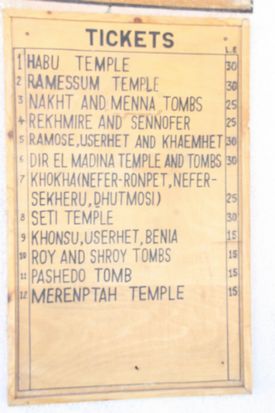 TICKETS
L.E
1 HABU TEMPLE 30
2 RAMESSUM TEMPLE 30
3 NAKHT AND MENNA TOMBS 25
4 REKHMIRE AND SENNOFER 25
5 RAMOSE,USERHET AND KHAEMHET 30
6 DIR EL MADINA TEMPLE AND TOMBS 30
7 KHOKHA(NEFER-RONPET,NEFER-
SEKHERU,DHUTMOSI) 25
8 SETI TEMPLE 30
9 KHONSU,USERHET,BENIA 15
10 ROY AND SHROY TOMBS 15
11 PASHEDO TOMB 15
12 MERENPTAH TEMPLE 15